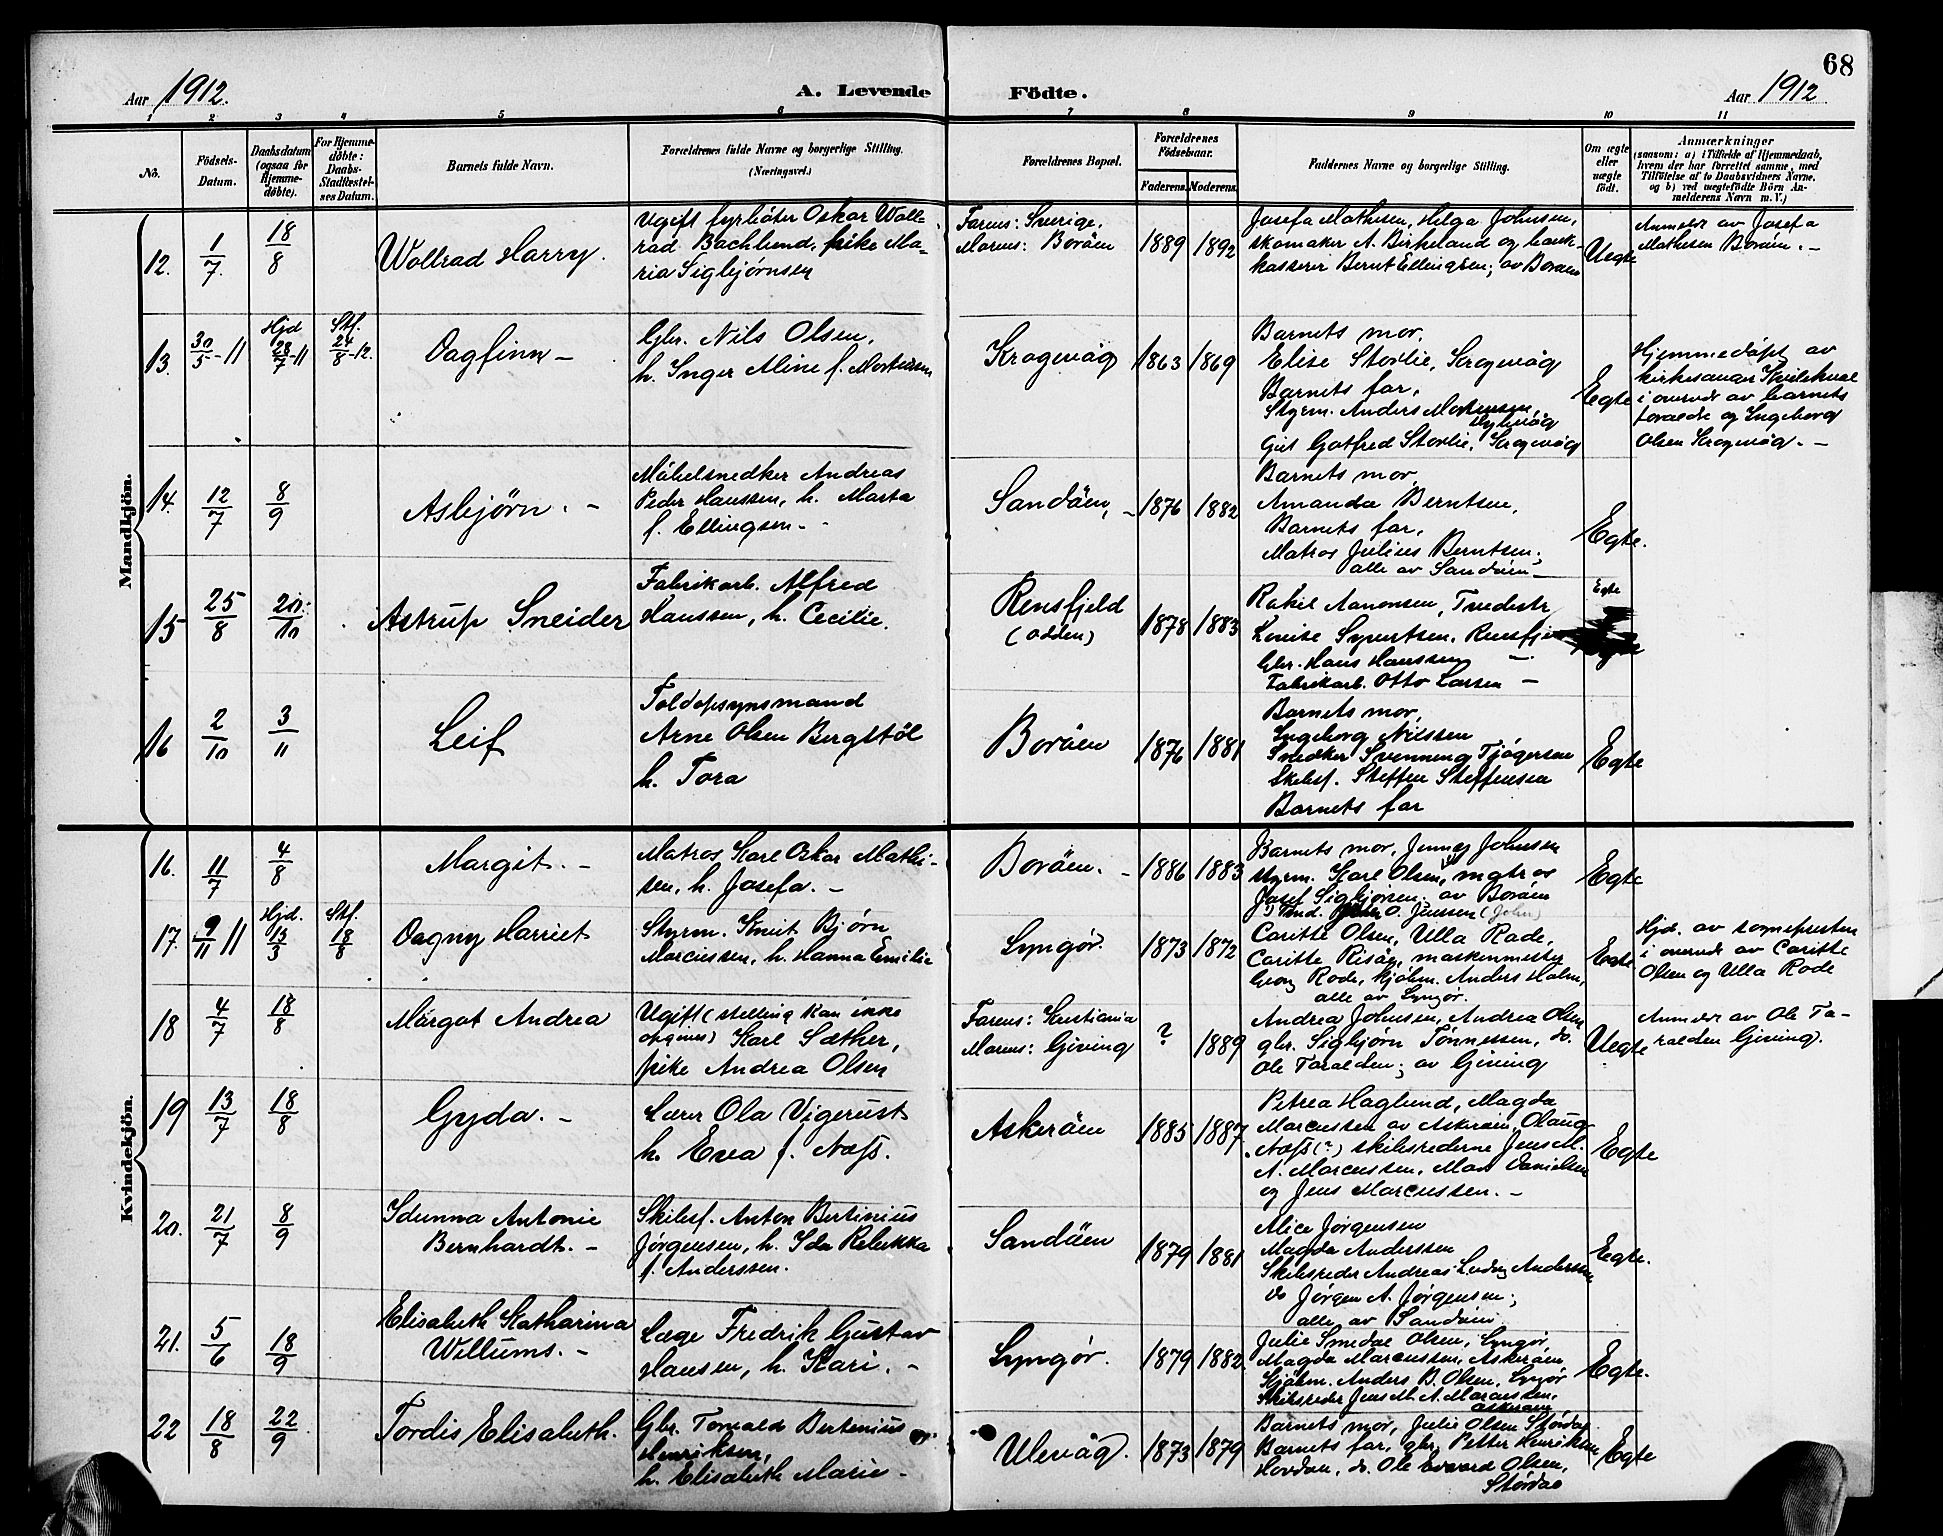 68
Aar 1912.
A. Levende Födte.
Aar 1912
1 2 3 4 5 6 7 8 9 10 11
No.
Födsels-
Datum.
Daabsdatum
(ogsaa for
Hjemme-
döbte).
For Hjemme-
döbte:
Daabs-
Stadfæstel-
ses Datum.
Barnets fulde Navn.
Forældrenes fulde Navne og borgerlige Stilling.
(Næringsvei.)
Forældrenes Bopæl.
Forældrenes
Födselsaar.
Faderens. Moderens.
Faddernes Navne og borgerlige Stilling.
Om ægte
eller
uægte
født.
Anmærkninger
(saasom: a) i Tilfælde af Hjemmedaab,
hvem der har forrettet samme, med
Tilföielse af to Daabsvidners Navne,
og b) ved uægtefödte Börn An-
melderens Navn m. V.)
Mandkjön.
12.
1/7.
18/8
Wollrad Harry.
Ugift fyrbøter Oskar Woll-
rad Bachlund, pike Ma-
ria Sigbjørnsen
Farens: Sverige.
Morens: Borøen
1889
1892
Josefa Mathisen, Helga Johnsen,
skomaker A. Birkeland og bank-
kasserer Bernt Ellingsen; av Borøen
Uegte
Anmeldt av Josefa
Mathesen Borøen. -
13.
30/5-11
Hjd
28/7-11
Stf.
24/8-12.
Dagfinn -
Gbr. Nils Olsen,
h. Inger Aline f. Mortensen
Kragevåg
1863
1869
Barnets mor.
Elise Storlie, Kragevåg
Barnets far,
Styrm. Anders Mortensen,
Gut Gotfred Storlie, Kragevåg
Egte
Hjemmedøpt av
kirkesanger
i overvær av barnets
forældre og Ingeborg
Olsen Kragevåg. -
14.
12/7
8/9
Asbjørn. -
Møbelsnedker Andreas
Peder Hanssen, h. Marta
f. Ellingsen -
Sandøen, -
1876
1882
Barnets mor,
Amanda Berntsen,
Barnets far,
Matros Julius Berntsen;
alle av Sandøen -
Egte.
15
25/8
20/10
Astrup Sneider
Fabrikarb. Alfred
Hanssen, h. Cecilie.
Rensfjeld
(Odden)
1878
1883
Rakel Aanonsen, Tvedestr
Louise Syvertsen, Rensfj
Gbr. Hans Hanssen -
Fabrikarb. Otto Larsen -
Egte
16
2/10
3/11
Leif
Toldopsynsmand
Arne Olsen Bergstøl
h. Tora
Borøen
1876
1881
Barnets mor,
Ingeborg Nilssen
Snedker Svenning Tjøgersen
Skibsf. Steffen Steffensen
Barnets far
Egte
Kvindekjön.
16.
11/7
4/8
Margit. -
Matros Karl Oskar Mathi-
sen, h. Josefa. -
Borøen. -
1886
1883
Barnets mor, Jenny Johnsen
styrm. Karl Olsen, matros
Josef Sigbjørsen; av Borøen
Tønd. O. Jenssen (John)
Egte
17.
9/11 11
Hjd.
13/3
Stf.
18/8
Dagny Harriet
Styrm. Knut Bjørn
Marcussen, h. Hanna Emilie
Lyngør.
1873
1872
Caritte Olsen, Ulla Rode,
Caritte Risøy, maskinmester
Georg Rode, kjøbm. Anders Holm,
alle av Lyngør.
Egte
Hjd. av sognepresten
i overvær av Caritte
Olsen og Ulla Rode
18
4/7
18/8
Margot Andrea
Ugift (stilling kan ikke
opgives) Karl Sæther,
pike Andrea Olsen
Farens: Kristiania
Morens: Giving
?
1889
Andrea Johnsen, Andrea Olsen
gbr. Sigbjørn Tønnessen, do.
Ole Taraldsen; av Giving
Uegte
Anmeldt av Ole Ta-
raldsen Giving.
19
13/7
18/8
Gyda. -
Lærer Ola Vigerust
h. Eva f. Næss.
Askerøen
1885
1887
Petrea Haglund, Magda
Marcussen av Askerøen, Olaug
Næss (?) skibsrederne Jens M.
A. Marcussen, Max Danielsen
og Jens Marcussen. -
Egte
20.
21/7
8/9
Idunna Antonie
Bernhardt. -
Skibsf. Anton Bertinius
Jørgensen, h. Ida Rebekka
f. Anderssen.
Sandøen
1879
1881
Alice Jørgensen
Magda Anderssen
Skibsreder Andreas Ludvig Anderssen
do Jørgen A. Jørgensen;
alle av Sandøen.
Egte.
21.
5/6
18/9
Elisabeth Katharina
Willums. -
Læge Fredrik Gustav
Hansen, h. Kari. -
Lyngør.
1879
1882.
Julie Smedal Olsen, Lyngør,
Magda Marcussen, Askerøen,
Kjøbm. Anders B. Olsen, Lyngør
Skibsreder Jens M. A. Marcussen,
Askerøen
Egte.
22
18/8
22/9
Tordis Elisabeth.
Gbr. Torvald Bertenius
Henriksen,
h. Elisabeth Marie -
Ulevåg.
1873
1879
Barnets mor, Julie Olsen Størdal
Barnets far, gbr. Petter Henriksen
Hovdan, do. Ole Edvard Olsen,
Størdal
Egte